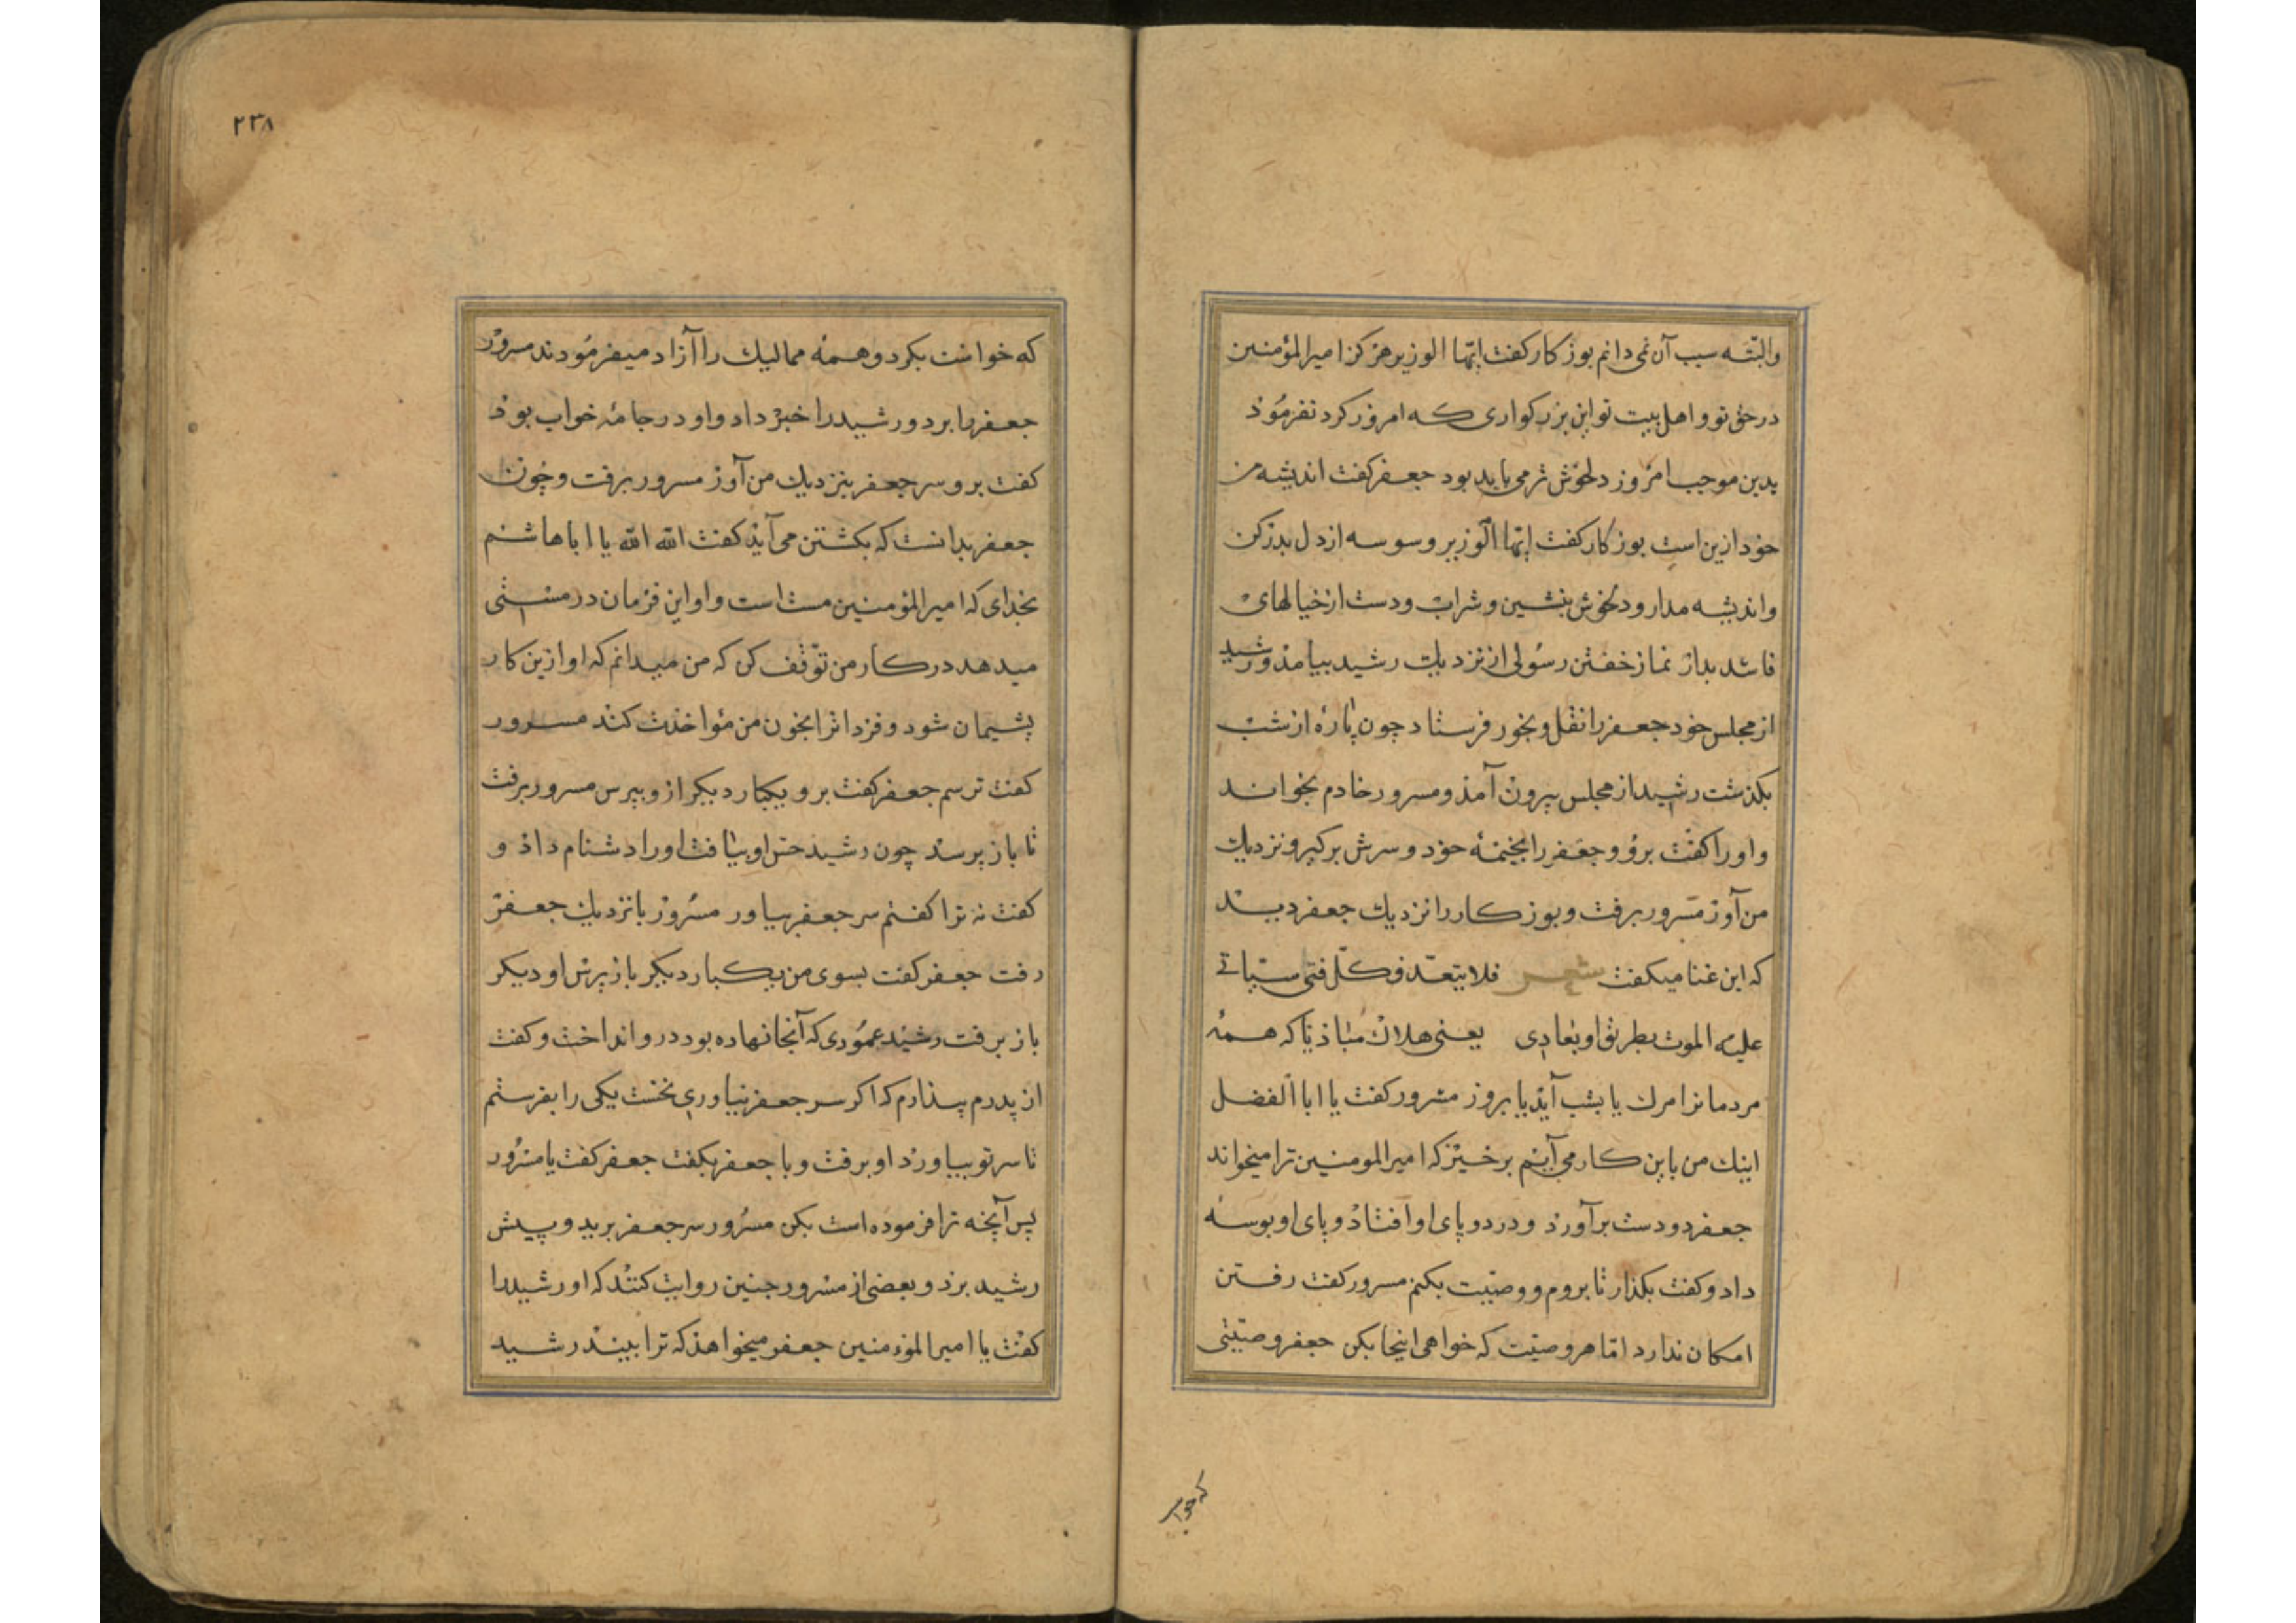 والبتّه سبب آن نمی دانم بوزکار کفت ایّها الوزیر هرکز امیرالمؤمنین
در حق تو و اهل بیت تو این بزرکواری که امروز کرد نفرمُوذ
بدین موجب امروز دلخوش تر می باید بود جعفر کفت اندیشه من
خود ازین است بوزکار کفت ایّها الوزیر وسوسه از دل بدر کن
و اندیشه مدار و دلخوش بنشین و شراب و دست از خیالهای
فاسد بدار نماز خفتن رسولی از نزدیك رشید بیامذ و رشید
از مجلس خود جعفر را نقل و بخور فرستاد چون پاره از شب
بکذشت رشید از مجلس بیرون آمذ و مسرور خادم بخواند
و اورا کفت برو و جعفر را بخیمهٔ خود و سرش برکیر و نزدیك
من آور مسرور برفت و بوزکار را نزدیك جعفر دید
که این غنا میکفت شعر فلا یبعد فکلّ فتی سیاتی
علیه الموت بطریق او یغادی یعنی هلاك مباذیا که همه
مردمانرا مرك یا بشب آیذ یا بروز مسرور کفت یا ابا الفضل
اینك من باین کار می آیم برخیز که امیرالمومنین ترا میخواند
جعفر دو دست برآورد و در دو پای او افتاذ و پای او بوسه
داد و کفت بکذار تا بروم و وصیّت بکنم مسرور کفت رفتن
امکان ندارد امّا هر وصیّت که خواهی اینجا بکن جعفر وصیّتی
که خواست
۲۳۸
که خواست بکرد و همهٔ ممالیك را آزاد میفرمُودند مسرور
جعفر را ببرد و رشید را خبر داد و او در جامهٔ خواب بوذ
کفت برو سر جعفر بنزدیك من آور مسرور برفت و چون
جعفر بدانست که بکشتن می آیذ کفت الله الله یا ابا هاشم
بخدای که امیرالمؤمنین مست است و او این فرمان در مستی
میدهد در کار من توقف کن که من میدانم که او ازین کار
پشیمان شود و فردا ترا بخون من مواخذت کند مسرور
کفت ترسم جعفر کفت برو و یکبار دیکر ازو بپرس مسرور برفت
تا باز پرسد چون رشید حس او بیافت اورا دشنام داذ و
کفت نه ترا کفتم سر جعفر بیاور مسرور بانزدیك جعفر
رفت جعفر کفت بسوی من یکبار دیکر باز پرس او دیکر
باز برفت رشید عمودی که آنجا نهاده بود درو انداخت و کفت
از پدرم بیذارم که اکر سر جعفر نیاوری نخست یکی را بفرستم
تا سر تو بیاورد او برفت و با جعفر بکفت جعفر کفت یا مسرور
پس آنچه ترا فرموده است بکن مسرور سر جعفر برید و پیش
رشید برد و بعضی از مسرور چنین روایت کنند که او رشید را
کفت یا امیرالمؤمنین جعفر میخواهذ که ترا بیند رشید